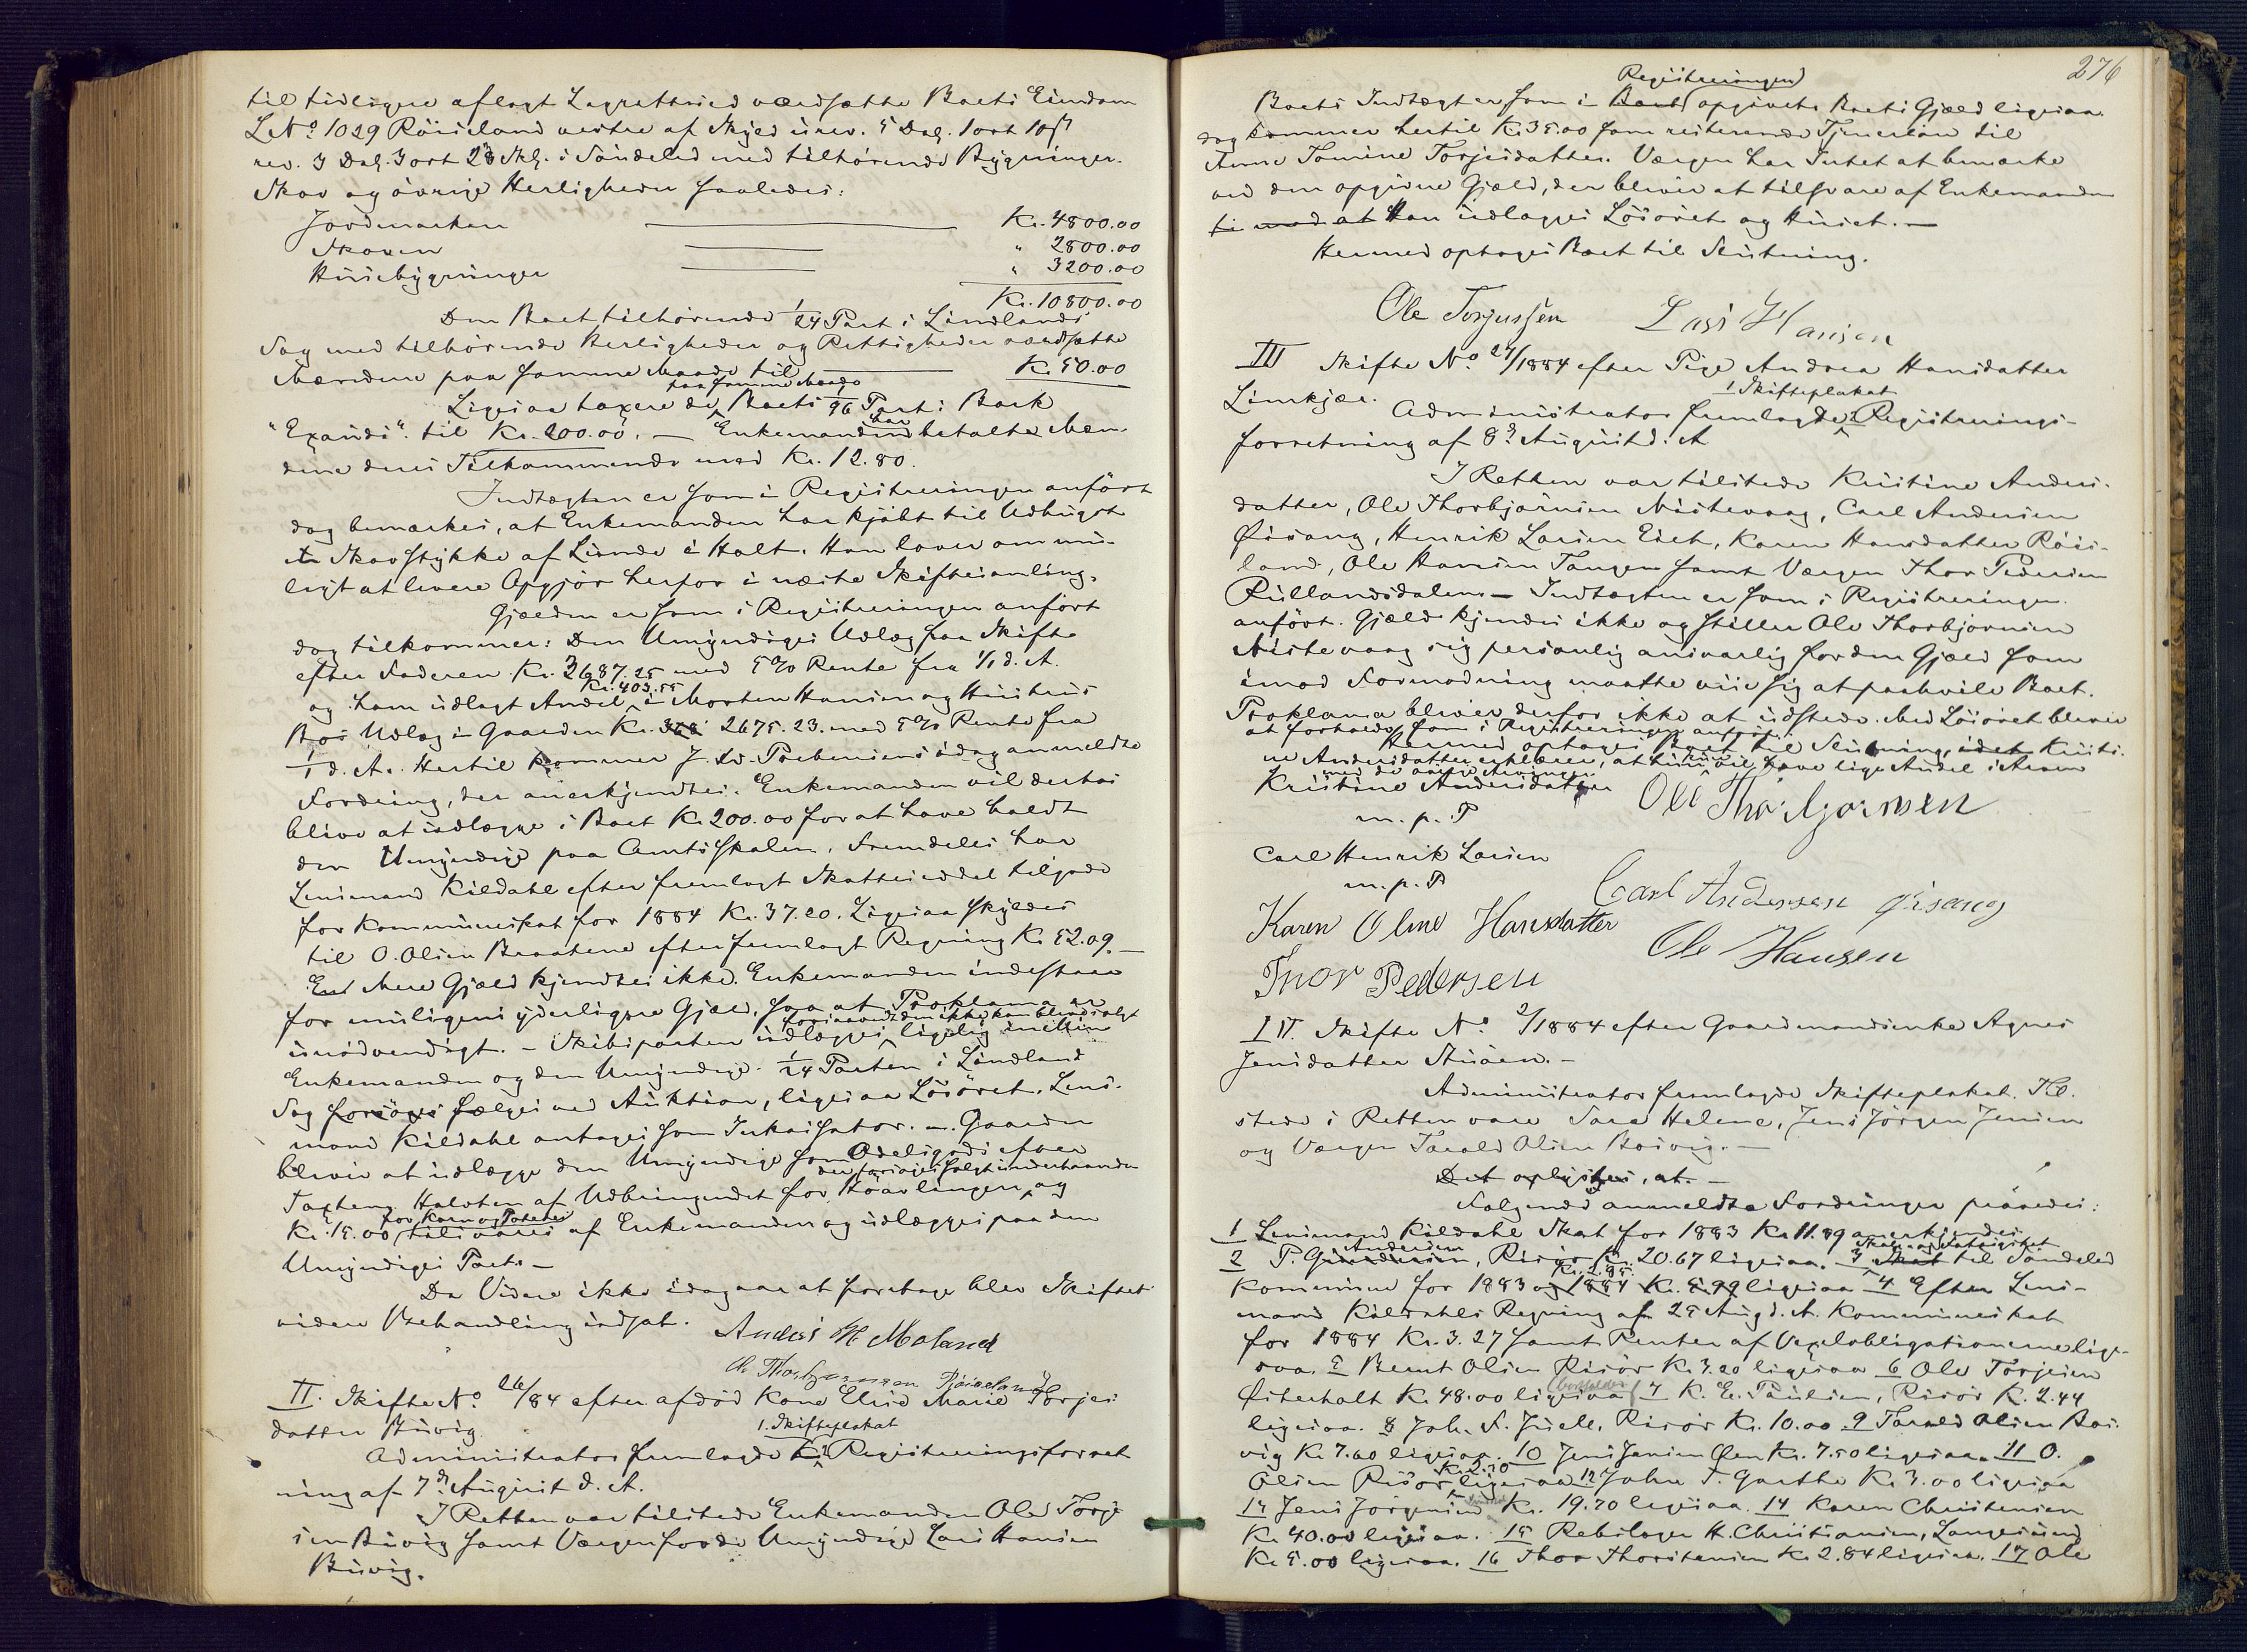 til tidligere aflagt Lagrettsed værdsatte Boets Eiendom
L.No. 1029 Röiseland vestre af Skyld urev. 5 Dal. 1 ort 10 ß
rev. 3 Dal. 3 ort 28 Skl. i Söndeled med tilhörende Bygninger.
Skov og övrige Herligheder saaledes:
Jordmarken Kr. 4800.00
Skoven " 2800.00
Husebygninger " 3200.00
Kr. 10800.00
Den Boet tilhörende 1/24 Part i Lindlands
Sag med tilhörende Herligheder og Rettigheder værdsatte
Mændene paa samme Maade til Kr. 50.00
Ligesaa taxere de paa samme Maade Boets 1/96 Part i Bark
"Expands" til Kr. 200.00. — Enkemanden har betalte Mæn-
dene deres Tilkommende med Kr. 12.80.
Indtægten er som i Registreringen anfört
dog bemærkes, at Enkemanden har kjöbt til Udhugst
et Skovstykke af Lunde i Holt. Han lover om mu-
ligt at levere Opgjör herfor i næste Skiftesamling.
Gjælden er som i Registreringen anfört
dog tilkommer: Den Umyndiges Udlæg paa Skifte
efter Faderen Kr. 2687.25 med 5 % Rente fra 1/1 d. A.
og ham udlagt Andel Kr. 403.55 i Morten Hansen og Hustrus
Bos Udlæg i Gaarden Kr. 2675.23. med 5 % Rente fra
1/1 d. A. Hertil kommer J. W. Prebensens idag anmeldte
Fordring, der anerkjendtes. Enkemanden vil derhos
blive at udlægge i Boet Kr. 200.00 for at have holdt
den Umyndige paa Amtsskolen. Fremdeles har
Lensmand Kildahl efter fremlagt Skatteseddel tilgode
for Kommuneskat for 1884 Kr. 37.20. Ligesaa skyldes
til O. Olsen Braatene efter fremlagt Regning Kr. 52.09. —
End Mere Gjæld kjendtes ikke. Enkemanden indestaar
for muligens yderligere Gjæld, saa at Proklama er
unödvendigt. – Skibsparten udlægges forsaavidt den ikke kan blive solgt ligelig mellem
Enkemanden og den Umyndige. 1/24 Parten i Lindland
Sag forsöges sælges ved Auktion, ligesaa Lösöret. Lens-
mand Kildahl antages som Inkassator. – Gaarden
bliver at udlægge den Umyndige som Odelsgods efter
Taxten, Halvten af Udbringendet for Höavlingen, der forsöges solgt underhaanden og
Kr. 15.00 for Korn og Poteter tilsvares af Enkemanden og udlægges paa den
Umyndiges Part. —
Da Videre ikke idag var at foretage blev Skiftet
videre Behandling udsat. Anders H Moland
Ole Thorbjørnsen Røiseland
II. Skifte No. 26/84 efter afdöd Kone Else Marie Torjes-
datter Buvig.
Administrator fremlagde 1. Skifteplakat Registreringsforret
ning af 7de August d. A.
I Retten var tilstede Enkemanden Ole Torje
sen Buvig samt Værgen for de Umyndige Lars Hansen
Buvig.
276
Boets Indtægt er som i Registreringen opgivet. Boets Gjæld ligesaa
dog kommer hertil Kr. 35.00 som resterende Tjenerlön til
Anne Tomine Torjesdatter. Værgen har Intet at bemærke
ved den opgivne Gjæld, der bliver at tilsvare af Enkemanden
ti mod at Han udlægges Lösöret og Huset. —
Hermed optages Boet til Slutning.
Ole Torjussen Lars Hansen
III Skifte No. 27/1884 efter Pige Andrea Hansdatter
Limkjær. Administrator fremlagde 1 Skifteplakat 2 Registrerings-
forretning af 8de August d. A
I Retten var tilstede Kristine Anders-
datter, Ole Thorbjörnsen Nistevaag, Carl Andersen
Øisang, Henrik Larsen Eiet, Karen Hansdatter Röis-
land, Ole Hansen Tangen samt Værgen Thor Pedersen
Rullandsdalen — Indtægten er som i Registreringen
anfört. Gjæld kjendes ikke og stiller Ole Thorbjörnsen
Nistevaag sig personlig ansvarlig for den Gjæld som
imod Formodning maatte vise sig at paahvile Boet.
Proklama bliver derfor ikke at udstede. Med Lösöret bliver
at forholde som i Registreringen anfört.
Hermed optages Boet til Slutning, idet Kristi-
ne Andersdatter erklærer, at hun vil have lige Andel i Arven
med de andre Arvinger.
Kristine Andersdatter Ole Thorbjørnsen
m. p. P
Carl Henrik Larsen
m. p. P Carl Andersen Øisang
Karen Oline Hansdatter Ole Hansen
Thor Pedersen
IV. Skifte No. 2/1884 efter Gaardmandsenke Agnes
Jensdatter Stuöen. —
Administrator fremlagde Skifteplakat. Til-
stede i Retten vare Sara Helene, Jens Jörgen Jensen
og Værgen Tarald Olsen Bosvig. —
Det oplystes, at. —
Følgende anmeldte Fordringer prövedes:
1 Lensmand Kildahl Skat for 1883 Kr. 11.89 anerkjendes
2 P. Andersen, Risör Kr. 20.67 ligesaa. 3 Skole og Fattigskat til Söndeled
Kommune for 1883 og 1884 Kr. 5.99 ligesaa 4 Efter Lens-
mand Kildahls Regning af 25 Aug d. A. Kommuneskat
for 1884 Kr. 3.27 samt Renter af Vexelobligationerne lige-
saa. 5 Bernt Olsen Risör Kr. 3.20 ligesaa 6 Ole Torjesen
Østerholt Kr. 48.00 ligesaa 7 K. E. Paulsen, Risör Kr. 2.44
ligesaa. 8 Joh. F. Juell, Risör Kr. 10.00 9 Tarald Olsen Bos-
vig Kr. 7.60 ligesaa. 10 Jens Jensen Øen Kr. 7.50 ligesaa. 11 O.
Olsen Risör Kr. 2.50 ligesaa 12 John T. Garthe Kr. 3.00 ligesaa
13 Jens Jörgensen Kr. 19.70 ligesaa. 14 Karen Christensen
Kr. 40.00 ligesaa. 15 Rebslager H. Christiansen, Langesund
Kr. 5.00 ligesaa. 16 Thor Thorstensen Kr. 2.84 ligesaa. 17 Ole